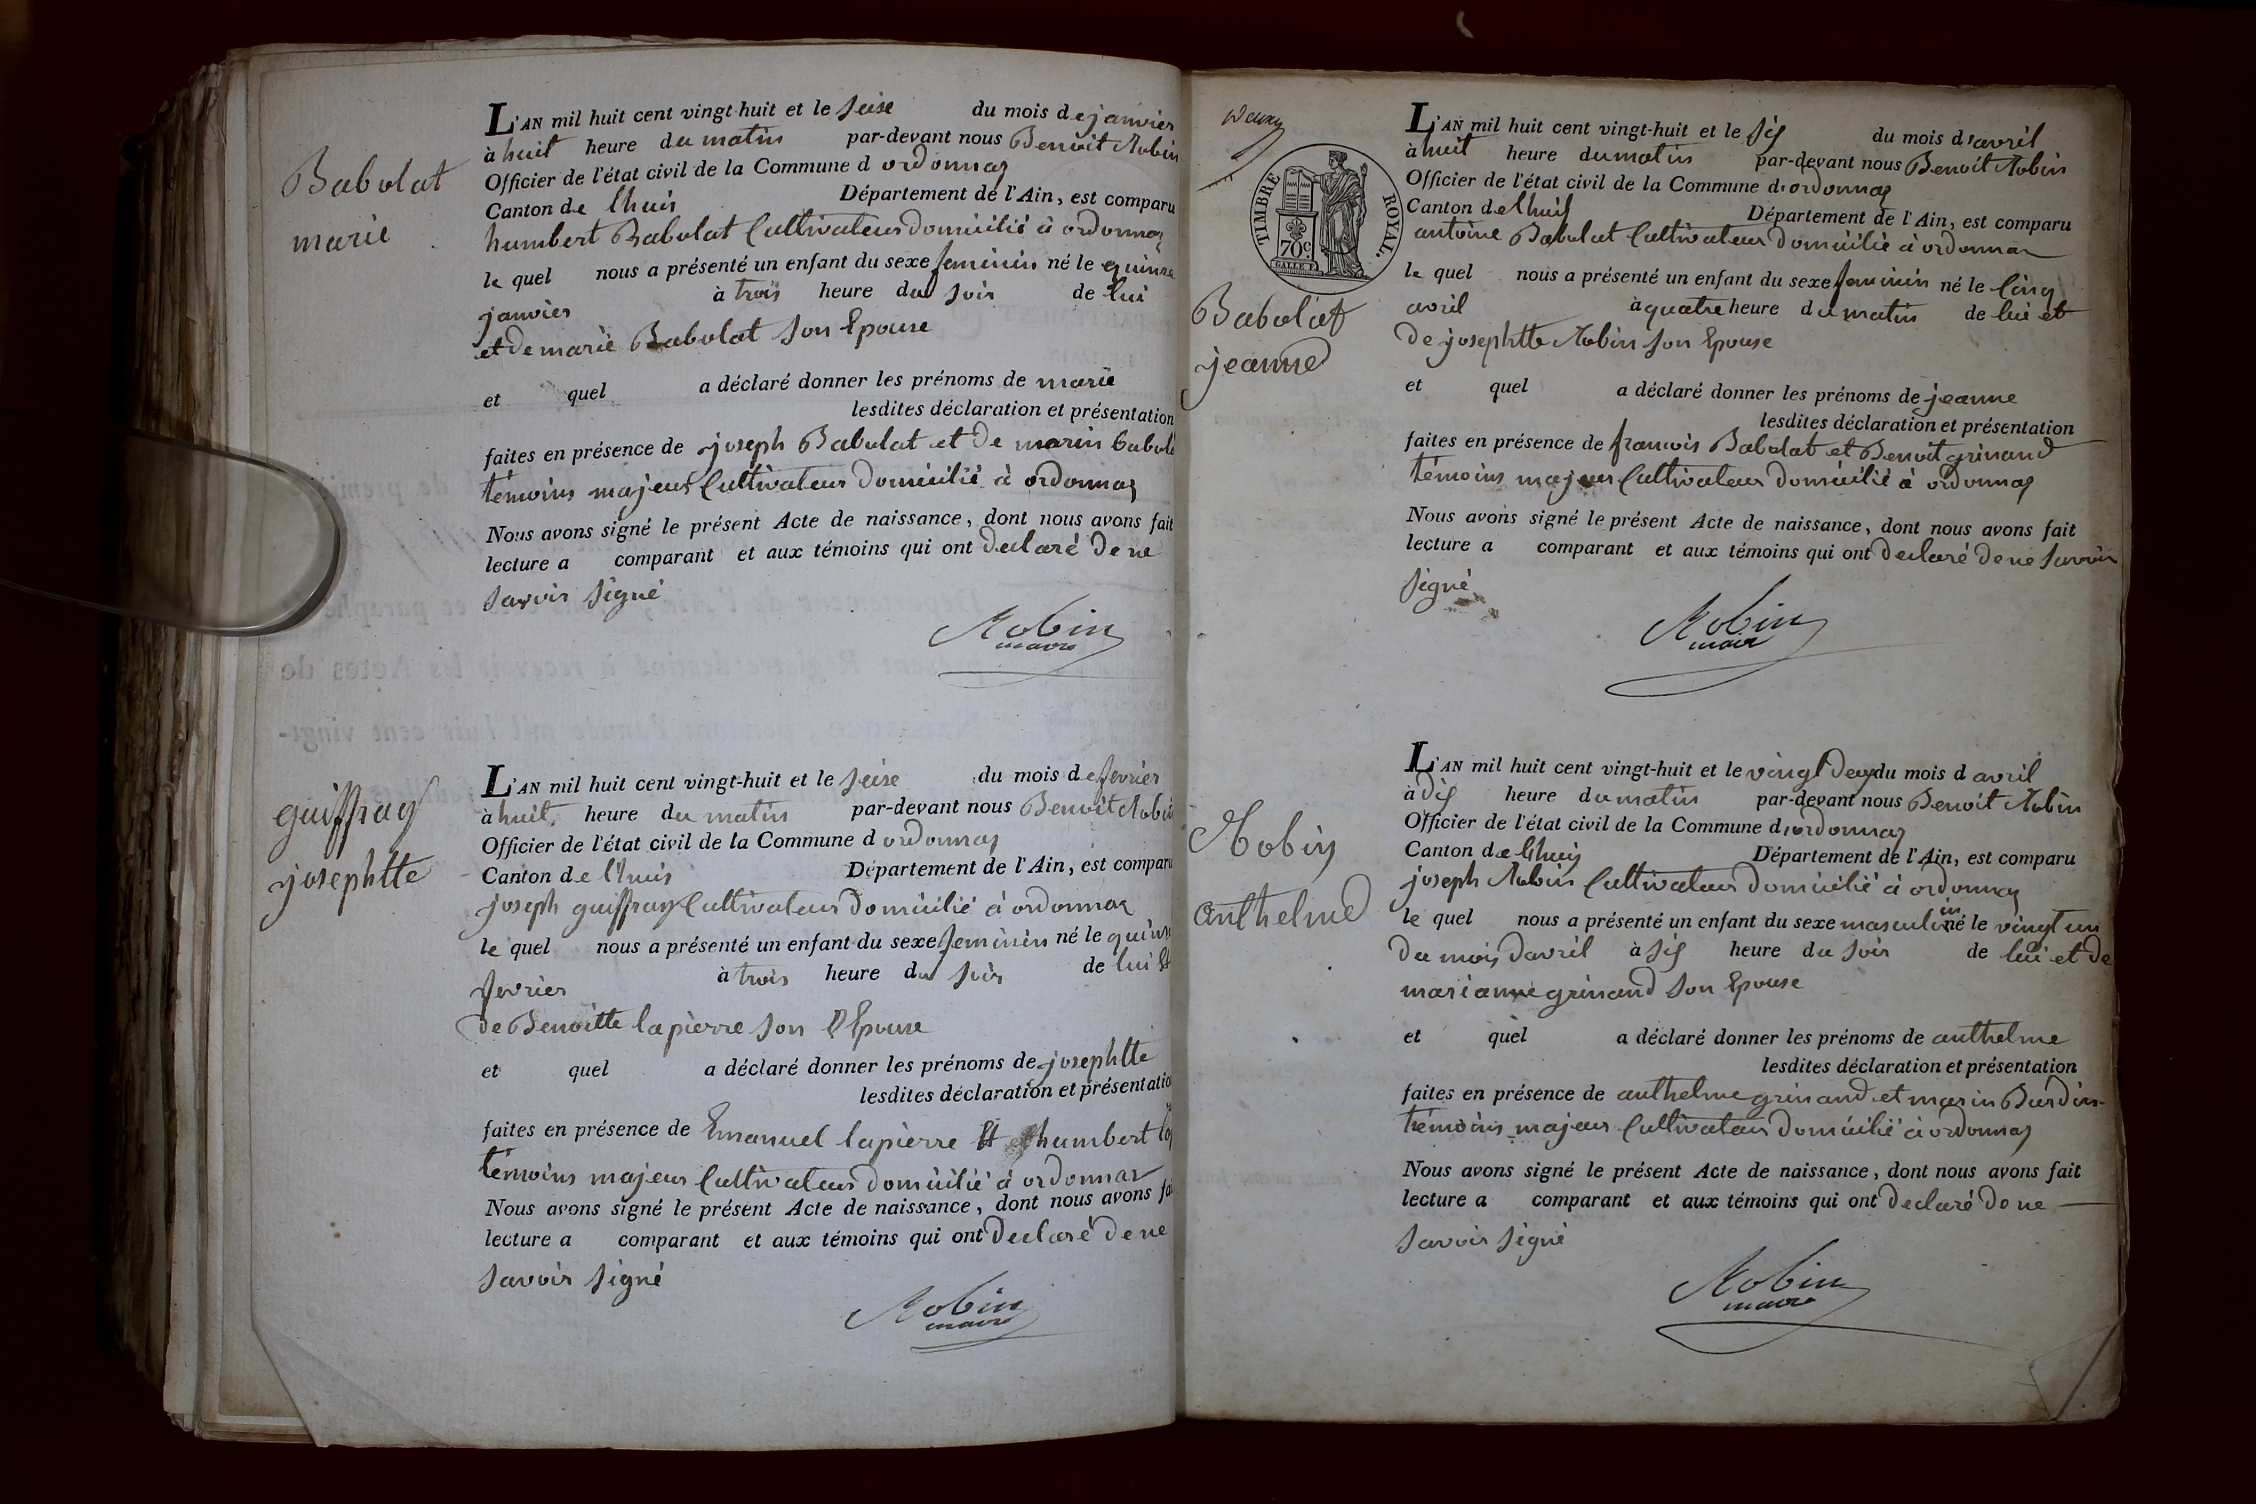 Babolat
marie
L'AN mil huit cent vingt-huit et le seise du mois de janvier
à huit heure du matin par-devant nous Benoit Robin
Officier de l'état civil de la Commune d ordonnaz
Canton de lhuis Département de l'Ain, est comparu
humbert Babolat Cultivateur domicilié à ordonnaz
le quel nous a présenté un enfant du sexe feminin né le quinze
janvier à trois heure du soir de lui
et de marie Babolat son Epouse
et quel a déclaré donner les prénoms de marie
lesdites déclaration et présentation
faites en présence de joseph Babolat et de marin babola
témoins majeur Cultivateur domicilié à ordonnaz
Nous avons signé le présent Acte de naissance, dont nous avons fait
lecture a comparant et aux témoins qui ont declaré de ne
savoir signé
Robin
maire
guiffray
josephtte
L'AN mil huit cent vingt-huit et le seise du mois de fevrier
à huit heure du matin par-devant nous Benoit Robin
Officier de l'état civil de la Commune d ordonnaz
Canton de l'huis Département de l'Ain, est comparu
joseph guiffray Cultivateur domicilié à ordonnaz
le quel nous a présenté un enfant du sexe feminin né le quinze
fevrier à trois heure du soir de lui Et
de Benoitte lapierre son Epouse
et quel a déclaré donner les prénoms de josephtte
lesdites déclaration et présentatio
faites en présence de Emanuel lapierre Et humbert
témoins majeur Cultivateur domicilié à ordonnaz
Nous avons signé le présent Acte de naissance, dont nous avons fai
lecture a comparant et aux témoins qui ont declaré de ne
savoir signé
Robin
maire
TIMBRE ROYAL.
70c
Babolat
jeanne
L'AN mil huit cent vingt-huit et le six du mois d'avril
à huit heure du matin par-devant nous Benoit Robin
Officier de l'état civil de la Commune d'ordonnaz
Canton de lhuis Département de l'Ain, est comparu
antoine Babolat Cultivateur domicilié à ordonnaz
le quel nous a présenté un enfant du sexe feminin né le Cinq
avril à quatre heure du matin de lui et
de josephtte Robin son Epouse
et quel a déclaré donner les prénoms de jeanne
lesdites déclaration et présentation
faites en présence de francois Babolat et Benoit grinand
témoins majeur Cultivateur domicilié à ordonnaz
Nous avons signé le présent Acte de naissance, dont nous avons fait
lecture a comparant et aux témoins qui ont declaré de ne savoir
signé
Robin
maire
Robin
anthelme
L'AN mil huit cent vingt-huit et le vingt deux du mois d avril
à dix heure du matin par-devant nous Benoit Robin
Officier de l'état civil de la Commune d'ordonnaz
Canton de lhuis Département de l'Ain, est comparu
joseph Robin Cultivateur domicilié à ordonnaz
le quel nous a présenté un enfant du sexe masculin né le vingt un
du mois d'avril à six heure du soir de lui et de
marianne grinand son Epouse
et quel a déclaré donner les prénoms de anthelme
lesdites déclaration et présentation
faites en présence de anthelme grinand et marin Burdin
témoins majeur Cultivateur domicilié à ordonnaz
Nous avons signé le présent Acte de naissance, dont nous avons fait
lecture a comparant et aux témoins qui ont declaré de ne
savoir signé
Robin
maire